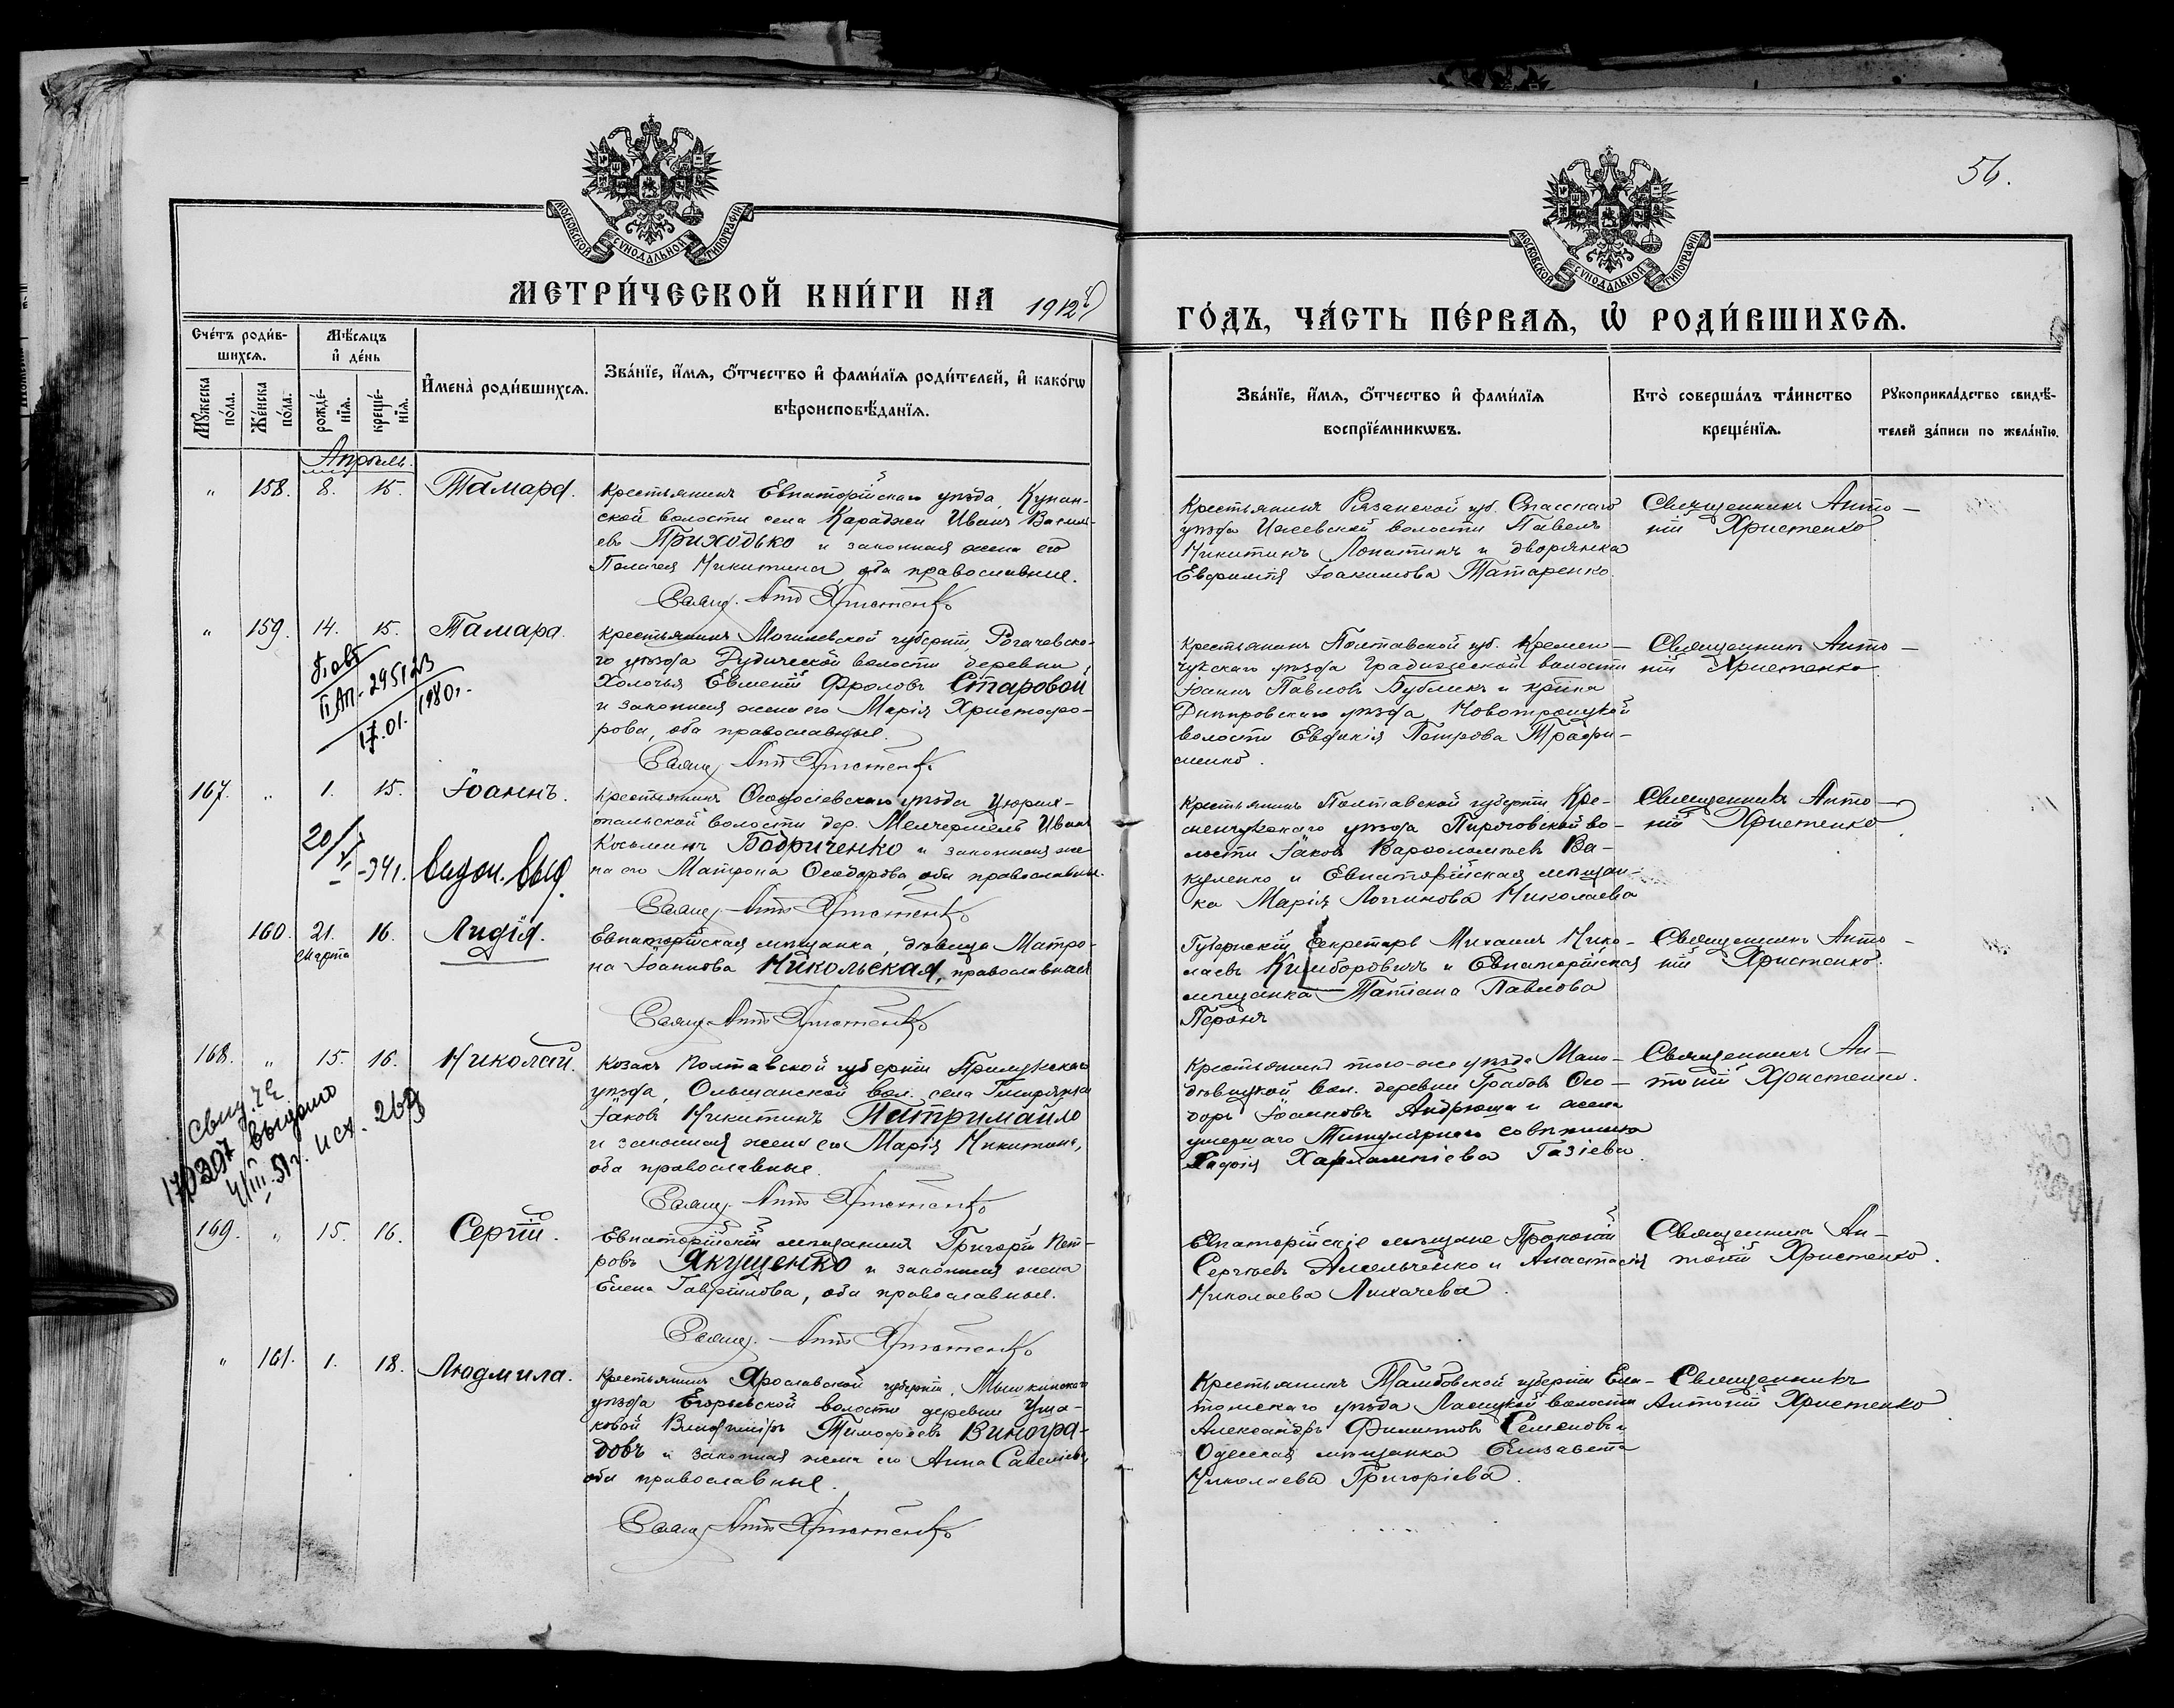 56.
МОСКОВСКОЙ СѴНОДАЛЬНОЙ ТИПОГРАФІИ
МОСКОВСКОЙ СѴНОДАЛЬНОЙ ТИПОГРАФІИ
МЕТРИ́ЧЕСКОЙ КНИ́ГИ НА 1912й
ГО́ДЪ, ЧА́СТЬ ПЕ́РВАѦ, Ѽ РОДИ́ВШИХСѦ.
Сче́тъ роди́в-
шихсѧ.
Мѣ́сѧцъ
и҆ де́нь
Мꙋжеска
по́ла.
Же́нска
по́ла.
рожде́-
нїѧ.
креще́-
нїѧ.
И҆мена̀ роди́вшихсѧ.
Зва́нїе, и҆́мѧ, ѻ҆́тчество и҆ фами́лїѧ роди́телей, и҆ како́гѡ
вѣроисповѣ́данїѧ.
Зва́нїе, и҆́мѧ, ѻ҆́тчество и҆ фами́лїѧ
воспрїе́мникѡвъ.
Кто̀ соверша́лъ та́инство
креще́нїѧ.
Рꙋкоприкла́дство свидѣ́-
телей за́писи по жела́нїю.
Апрѣль.
" 158. 8. 15. Тамара.
Крестьянинъ Евпаторійскаго уѣзда, Кунан-
ской волости села Караджи Иванъ Василь-
евъ Приходько и законная жена его
Пелагея Никитина оба православные.
Свящ. Ант Христенко
Крестьянинъ Рязанской губ. Спасскаго
уѣзда Ижевской волости Павелъ
Никитинъ Лопатинъ и дворянка
Евфимія Іоакимова Татаренко.
Священникъ Анто-
ній Христенко
" 159. 14. 15. Тамара.
Повт
II АП-295123
17.01.1980г.
Крестьянинъ Могилевской губерніи, Рогачевска-
го уѣзда Дудической волости деревни
Холочья Евменій Фроловъ Старовой
и законная жена его Марія Христофо-
рова, оба православные.
Свящ. Ант Христенко
Крестьянинъ Полтавской губ. Кремен-
чугскаго уѣзда Градижской волости
Іоаннъ Павловъ Бубликъ и кр-ка
Днѣпровскаго уѣзда Новотроицкой
волости Евфимія Петрова Трофи-
менко.
Священникъ Анто-
ній Христенко
167. " 1. 15. Іоаннъ.
20/VI-341. видом. выд.
Крестьянинъ Ѳеодосіевскаго уѣзда Цюрих-
тальской волости дер. Мелчермень Иванъ
Косьминъ Бодриченко и законная же-
на его Матрона Ѳеодорова, оба православны.
Свящ. Ант Христенко
Крестьянинъ Полтавской губерніи Кре-
менчугскаго уѣзда Пироговской во-
лости Іаковъ Варѳоломѣевъ Ва-
куленко и Евпаторійская мѣщан-
ка Марія Логгинова Николаева
Священникъ Анто-
ній Христенко
160. 21. Марта 16. Лидія.
Евпаторійская мѣщанка, дѣвица Матро-
на Іоаннова Никольская, православная
Свящ. Ант Христенко
Губернскій секретарь Михаилъ Нико-
лаевъ Кимборовичъ и Евпаторійская
мѣщанка Татіана Павлова
Перонъ
Священникъ Анто-
ній Христенко.
168. " 15. 16. Николай.
Свид. ЧЕ
170397 выдано
4/III.51г. исх. 269
Козакъ Полтавской губерніи Прилукскаго
уѣзда, Ольшанской вол. села
Іаковъ Никитинъ Патримайло
и законная жена его Марія Никитина,
оба православные.
Свящ. Ант Христенко
Крестьянинъ того-же уѣзда Мало-
дѣвицкой вол. деревни Грабовъ Ѳео-
доръ Іоанновъ Андрюша и жена
умершаго Титулярнаго совѣтника
Софія Харлампіева Газіева.
Священникъ Ан-
тоній Христенко.
169. " 15. 16. Сергій.
Евпаторійскій мѣщанинъ Григорій Пет-
ровъ Якущенко и законная жена
Елена Гавріилова, оба православные.
Свящ. Ант Христенко
Евпаторійскіе мѣщане Прокопій
Сергѣевъ Амельченко и Анастасія
Николаева Лихачева.
Священникъ Ан-
тоній Христенко.
" 161. 1. 18. Людмила.
Крестьянинъ Ярославской губерніи, Мышкинскаго
уѣзда Егорьевской волости деревни Уша-
ковой Владиміръ Тимофѣевъ Виногра-
довъ и законная жена его Анна Савельева,
оба православные.
Свящ. Ант Христенко
Крестьянинъ Тамбовской губерніи Ела-
томскаго уѣзда волости
Александръ Филиповъ Семеновъ и
Одесская мѣщанка Елизавета
Николаева Григорьева.
Священникъ
Антоній Христенко